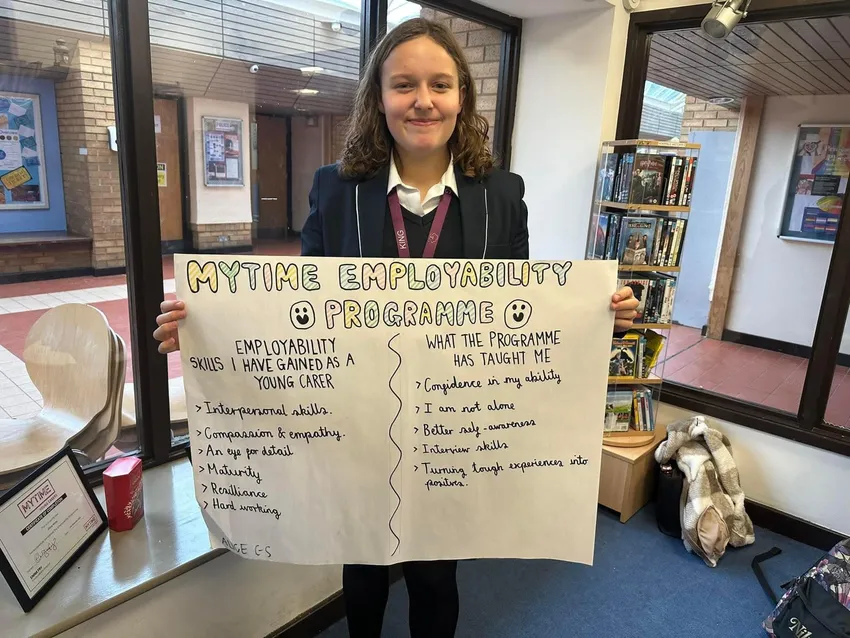 MYTIME EMPLOYABILITY
PROGRAMME
EMPLOYABILITY
SKILLS I HAVE GAINED AS A
YOUNG CARER
> Interpersonal skills.
> Compassion & empathy.
> An eye for detail
> Maturity
> Resilliance
> Hard working
WHAT THE PROGRAMME
HAS TAUGHT ME
> Confidence in my ability
> I am not alone
> Better self-awareness
> Interview skills
> Turning tough experiences into
positives.
KING
MYTIME